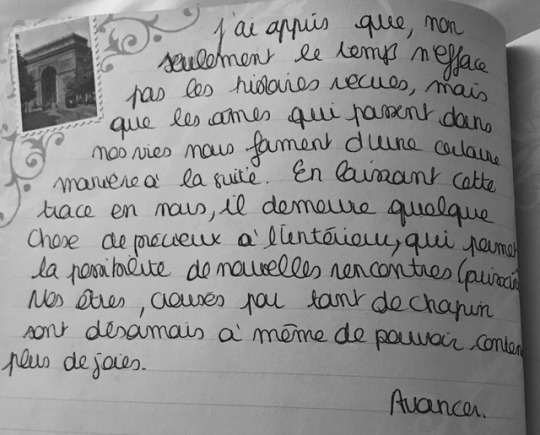 J'ai appris que, non
seulement le temps n'efface
pas les histoires vécues, mais
que les âmes qui passent dans
nos vies nous forment d'une certaine
manière à la suite. En laissant cette
trace en nous, il demeure quelque
chose de précieux à l'intérieur, qui permet
la possibilité de nouvelles rencontres
Nos êtres, creusés par tant de chagrin
sont désormais à même de pouvoir conten
plus de joies.
Avancer.